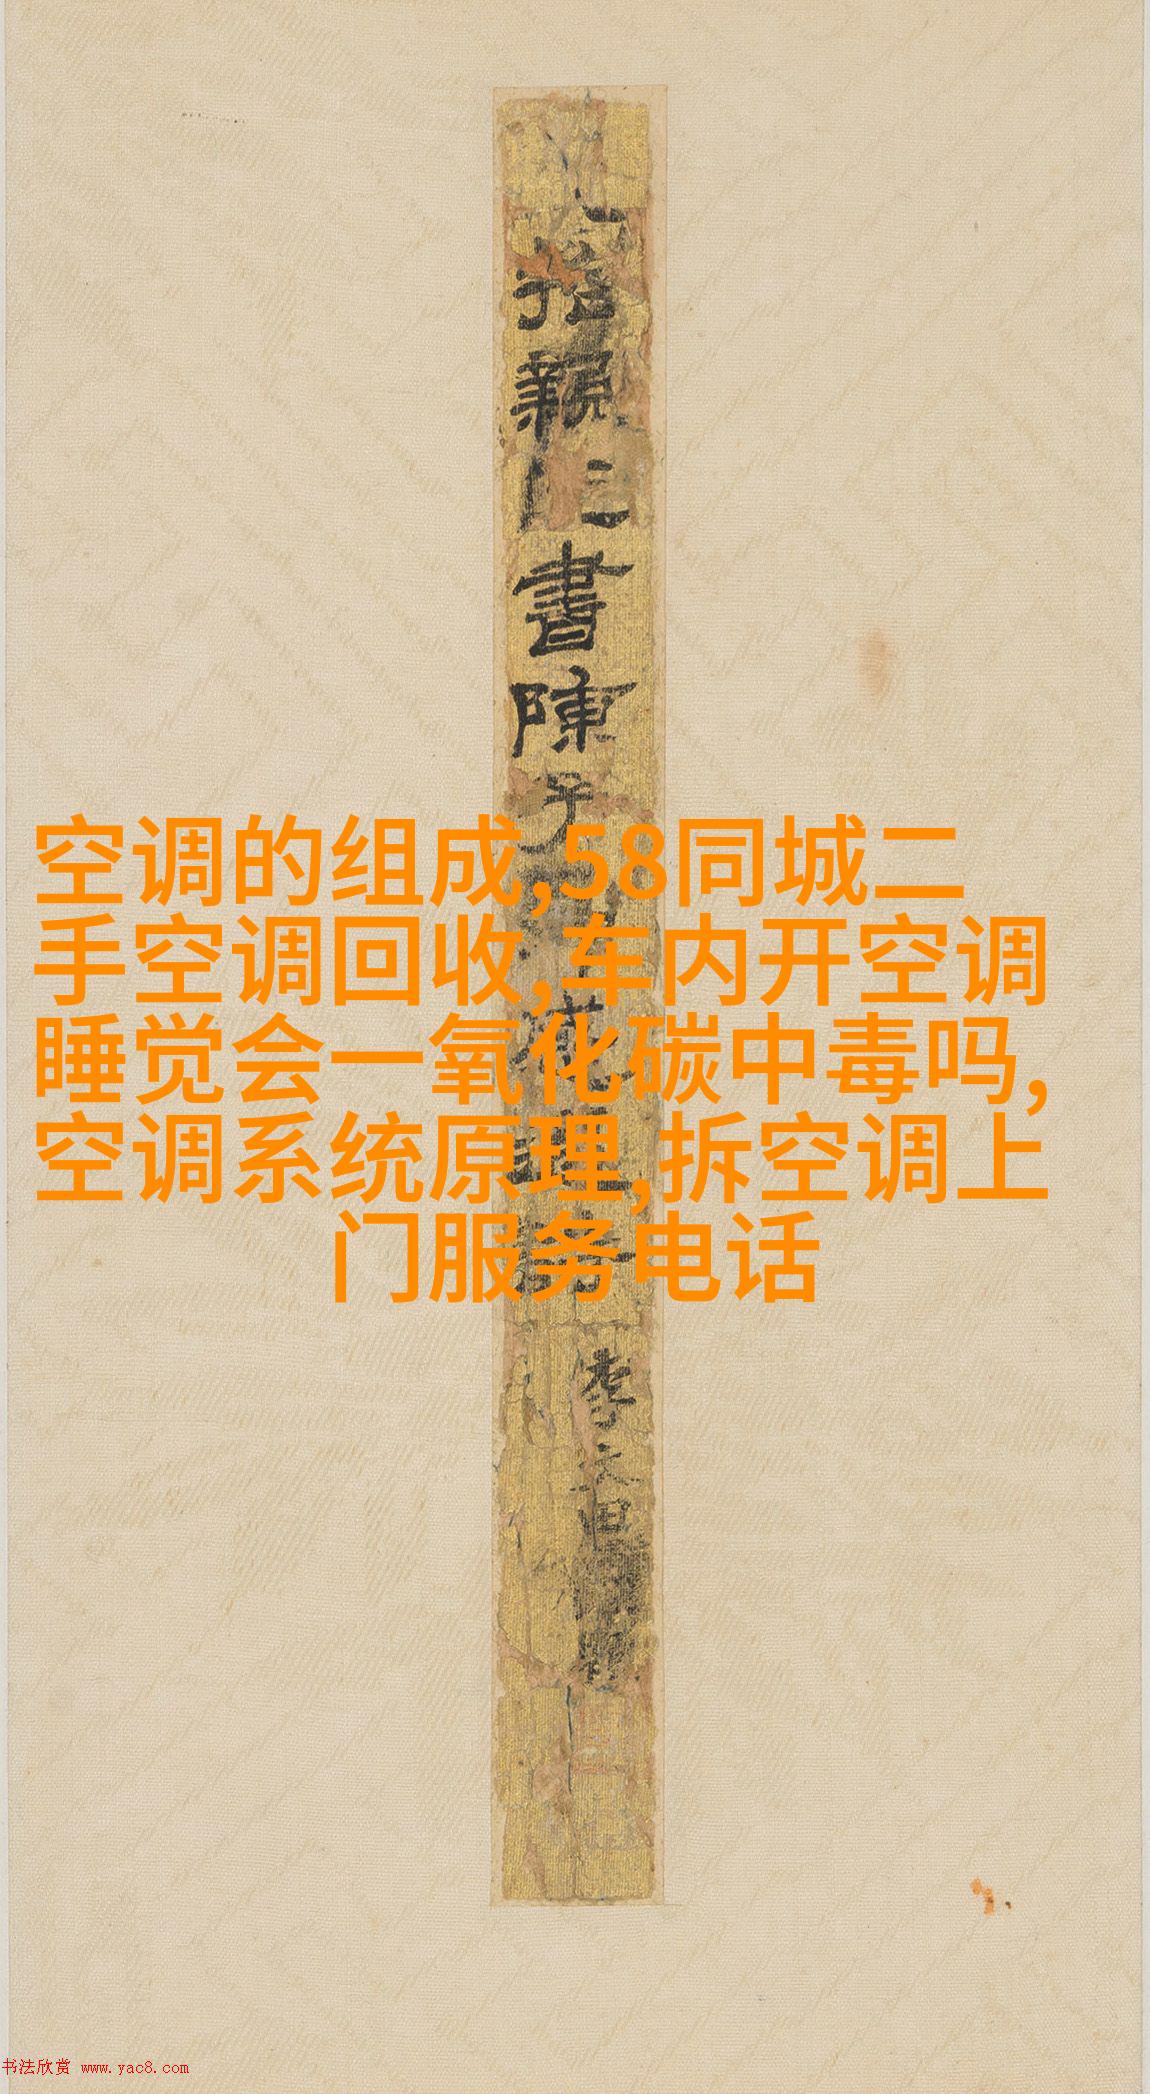 書陳子
李文田
空调的组成,58同城二
手空调回收,车内开空调
睡觉会一氧化碳中毒吗,
空调系统原理,拆空调上
门服务电话
书法欣赏 www.yac8.com